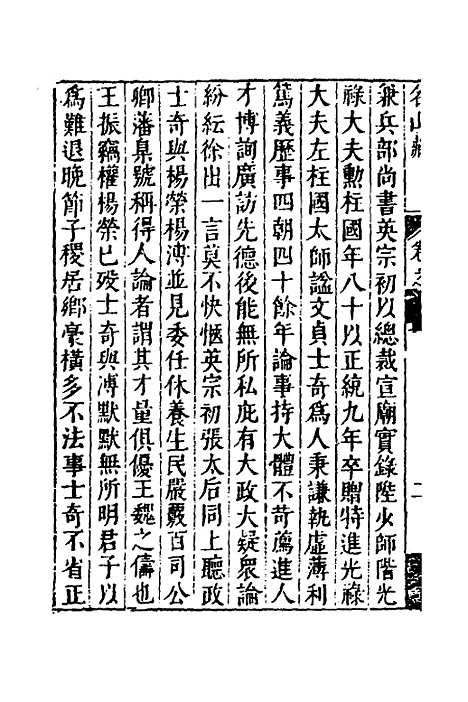 名山藏
兼兵部尚書英宗初以總裁宣廟實錄陞少師階光
祿大夫勲柱國年八十以正統九年卒贈特進光祿
大夫左柱國太師諡文貞士奇爲人秉謙執虛薄利
篤義歷事四朝四十餘年論事持大體不苛薦進人
才博詢廣訪先德後能無所私庇有大政大疑衆論
紛紜徐出一言莫不快愜英宗初張太后同上聽政
士奇與楊榮楊溥並見委任休養生民嚴覈百司公
卿藩臬號稱得人論者謂其才量俱優王魏之儔也
王振竊權楊榮已歿士奇與溥默默無所明君子以
爲難退晚節子稷居鄉豪橫多不法事士奇不省正